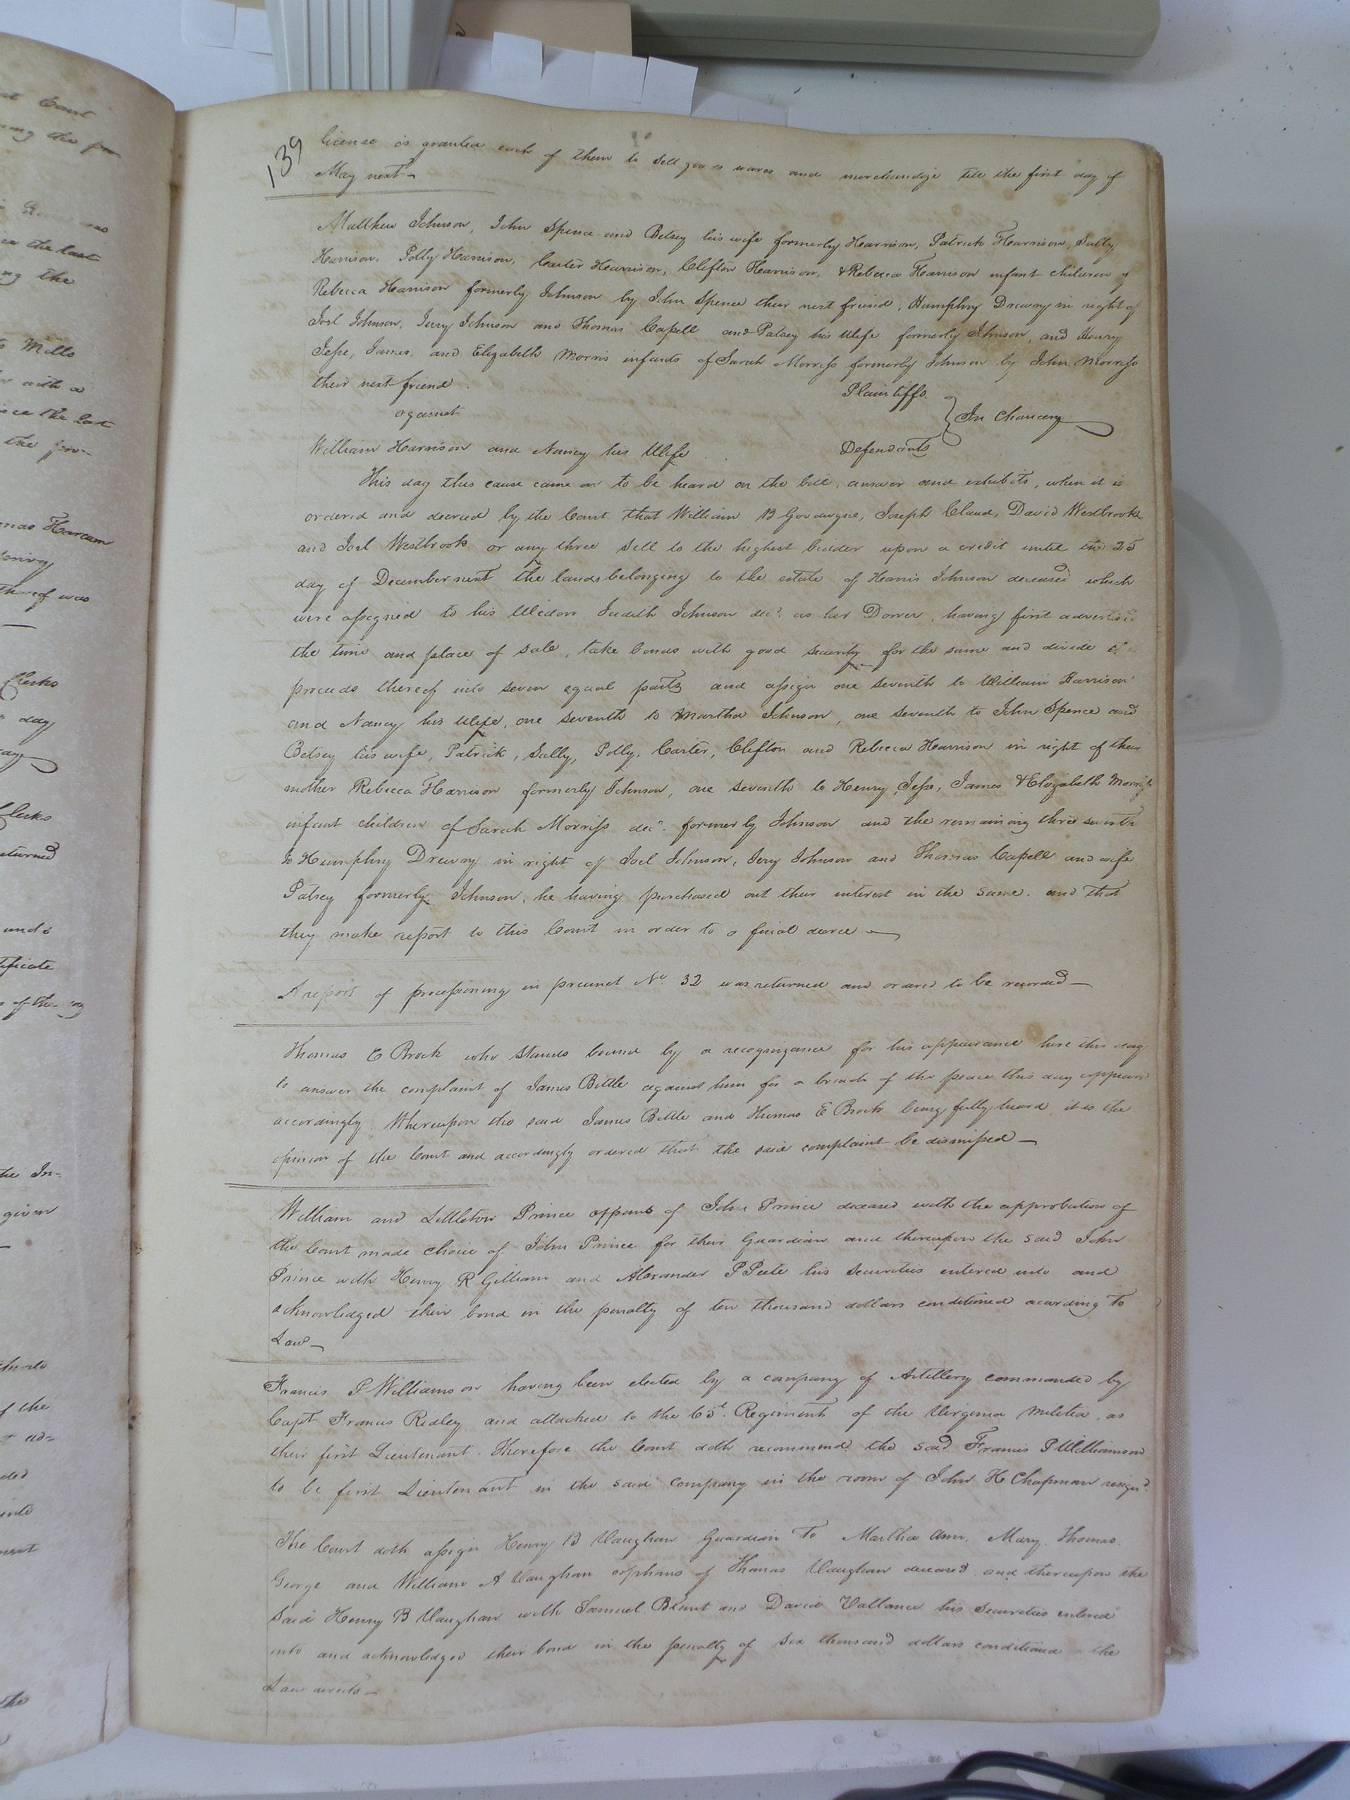 139
license is granted each of them to sell goods wares and merchandize till the first day of
May next
Matthew Johnson, John Spence and Betsey his wife formerly Harrison, Patrick Harrison, Sally
Harrison, Polly Harrison, Carter Harrison, Clifton Harrison, & Rebecca Harrison infant children of
Rebecca Harrison formerly Johnson by John Spence their next friend, Humphry Drewry in right of
Joel Johnson, Jerry Johnson and Thomas Capell and Patsey his Wife formerly Johnson, and Henry
Jesse, James, and Elizabeth Morris infants of Sarah Morriss formerly Johnson by John Morriss
their next friend.
Plaintiffs
against
In Chancery
William Harrison and Nancy his Wife
Defendants
This day this cause came on to be heard on the bill, answer and exhibits, when it is
ordered and decreed by the Court that William B Goodwyn, Joseph Claud, David Westbrook
and Joel Westbrook or any three sell to the highest bidder upon a credit until the 25
day of December next the lands belonging to the estate of Harris Johnson deceased which
were assigned to his Widow Judith Johnson decd. as her Dower, having first advertised
the time and place of sale, take bonds with good security for the same and divide the
proceeds thereof into seven equal parts and assign one seventh to William Harrison
and Nancy his Wife, one seventh to Martha Johnson, one seventh to John Spence and
Betsey his wife, Patrick, Sally, Polly, Carter, Clifton and Rebecca Harrison in right of their
mother Rebecca Harrison formerly Johnson, one seventh to Henry, Jesse, James & Elizabeth Morriss
infant children of Sarah Morriss decd. formerly Johnson and the remaining three sevenths
to Humphry Drewry in right of Joel Johnson, Jerry Johnson and Thomas Capell and wife
Patsey formerly Johnson, he having purchased out their interest in the same. and that
they make report to this Court in order to a final decree
A report of processioning in precinct No. 32 was returned and ordered to be recorded
Thomas E Brock who stands bound by a recognizance for his appearance here this day
to answer the complaint of James Bittle against him for a breach of the peace this day appeared
accordingly. Whereupon the said James Bittle and Thomas E Brock being fully heard, it is the
opinion of the Court and accordingly ordered that the said complaint be dismissed
William and Littleton Prince orphans of John Prince deceased with the approbation of
the Court made choice of John Prince for their Guardian and thereupon the said John
Prince with Henry R Gilliam and Alexander P Peete his securities entered into and
acknowledged their bond in the penalty of ten thousand dollars conditioned according to
Law
Francis P Williamson having been elected by a company of Artillery commanded by
Capt. Francis Ridley and attached to the 65t. Regiment of the Virginia Militia, as
their first Lieutenant. Therefore the Court doth recommend the said Francis P Williamson
to be first Lieutenant in the said company in the room of John H Chapman resigd
The Court doth assign Henry B Vaughan Guardian to Martha Ann, Mary, Thomas
George and William A Vaughan orphans of Thomas Vaughan deceased and thereupon the
said Henry B Vaughan with Samuel Blunt and David Vallance his securities entered
into and acknowledged their bond in the penalty of six thousand dollars conditioned the
Law directs